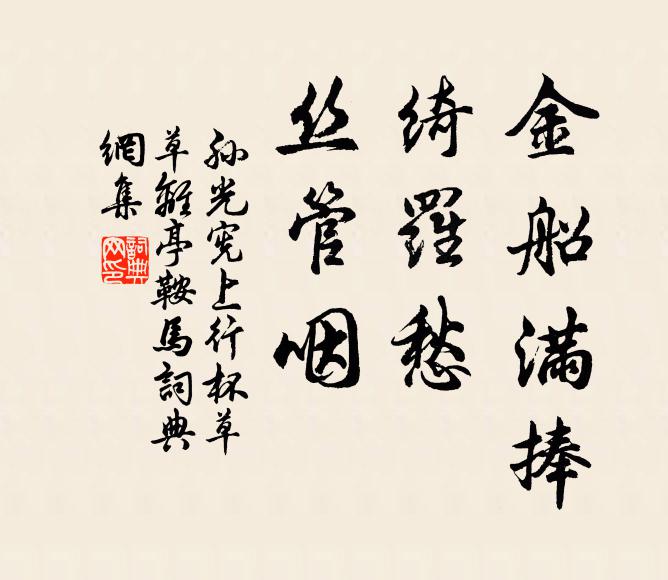 金船满捧
绮羅愁
丝管咽
孙光宪上行杯草
草離亭鞍馬詞典
網集
詞典
网印